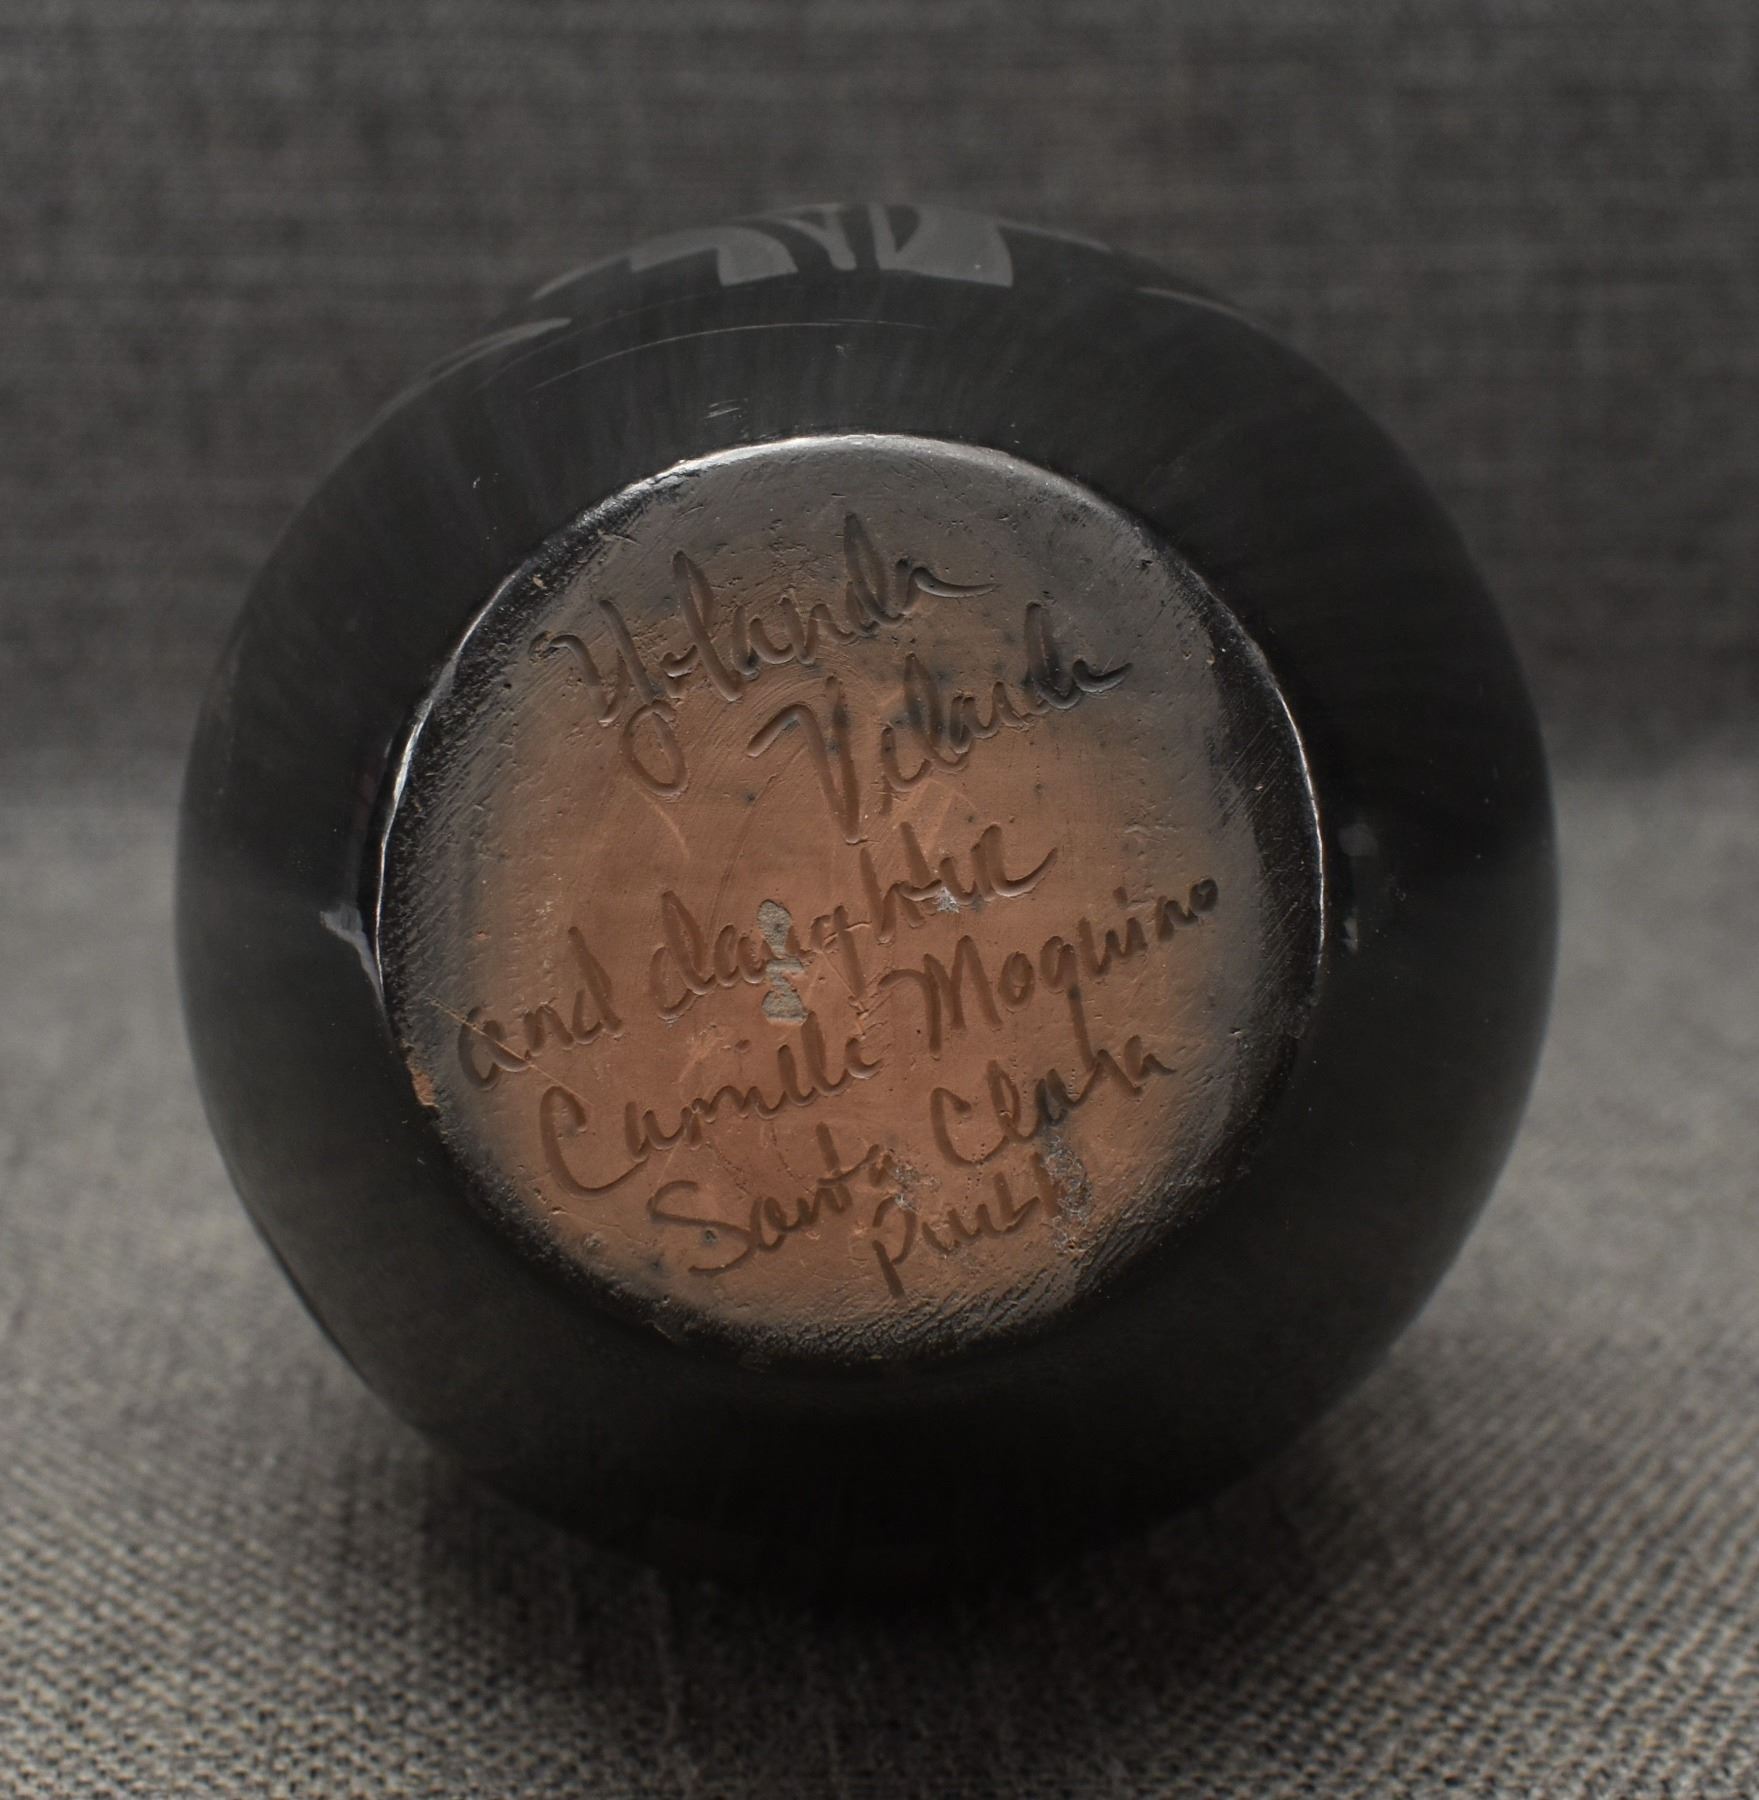 Yolanda
Velarde
and daughter
Camille Moquino
Santa Clara
Puebl